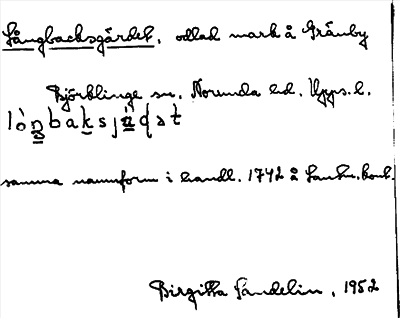 Långbacksgärdet, odlad mark å Gränby
Björklinge sn. Norunda hd. Upps. l.
samma namnform i handl. 1742 å Lantm.kont.
Birgitta Sandelin, 1952